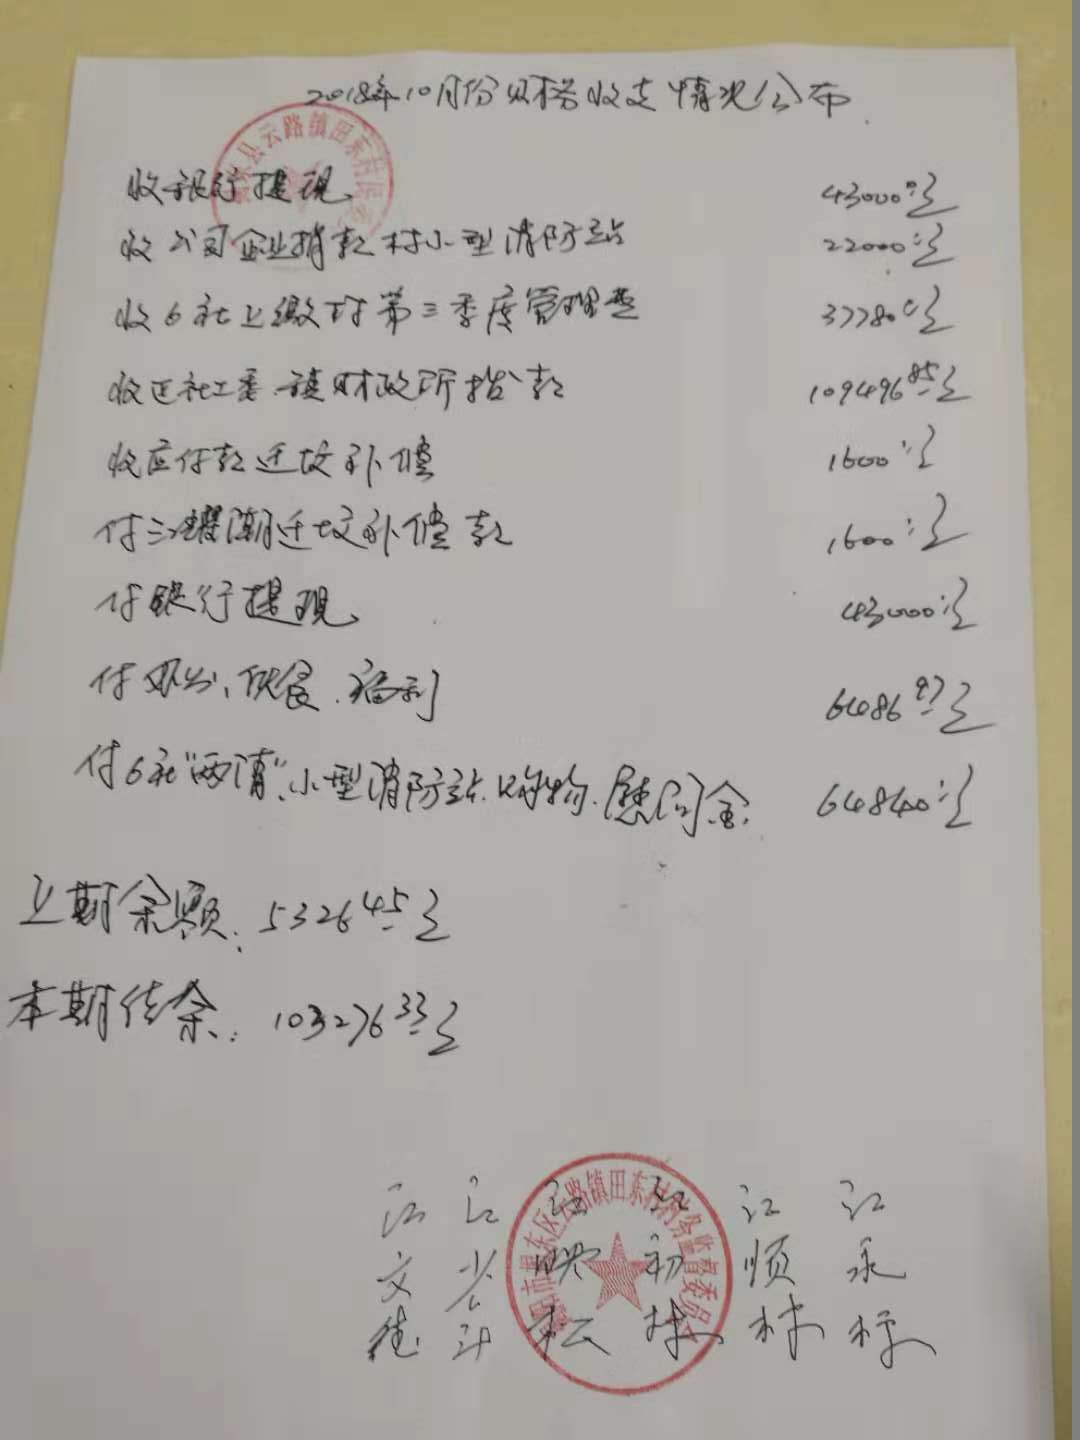 2018年10月份财务收支情况公布
收银行提现 43000元
收公司企业捐款村小型消防站 22000元
收6社上缴付第三季度管理费 37780元
收区社工委.镇财政所拨款 109496.85元
收应付款迁坟补偿 1600元
付江耀潮迁坟补偿款 1600元
付银行提现 43000元
付办公、伙食.福利 6486.97元
付6社"两清"、小型消防站.购物.慰问金 64840元
上期余额: 5326.45元
本期结余: 103276.33元
云路镇田东村民
东区云路镇田东村村务监督委员会
江文 江少 江映松 江初林 江顺林 江永